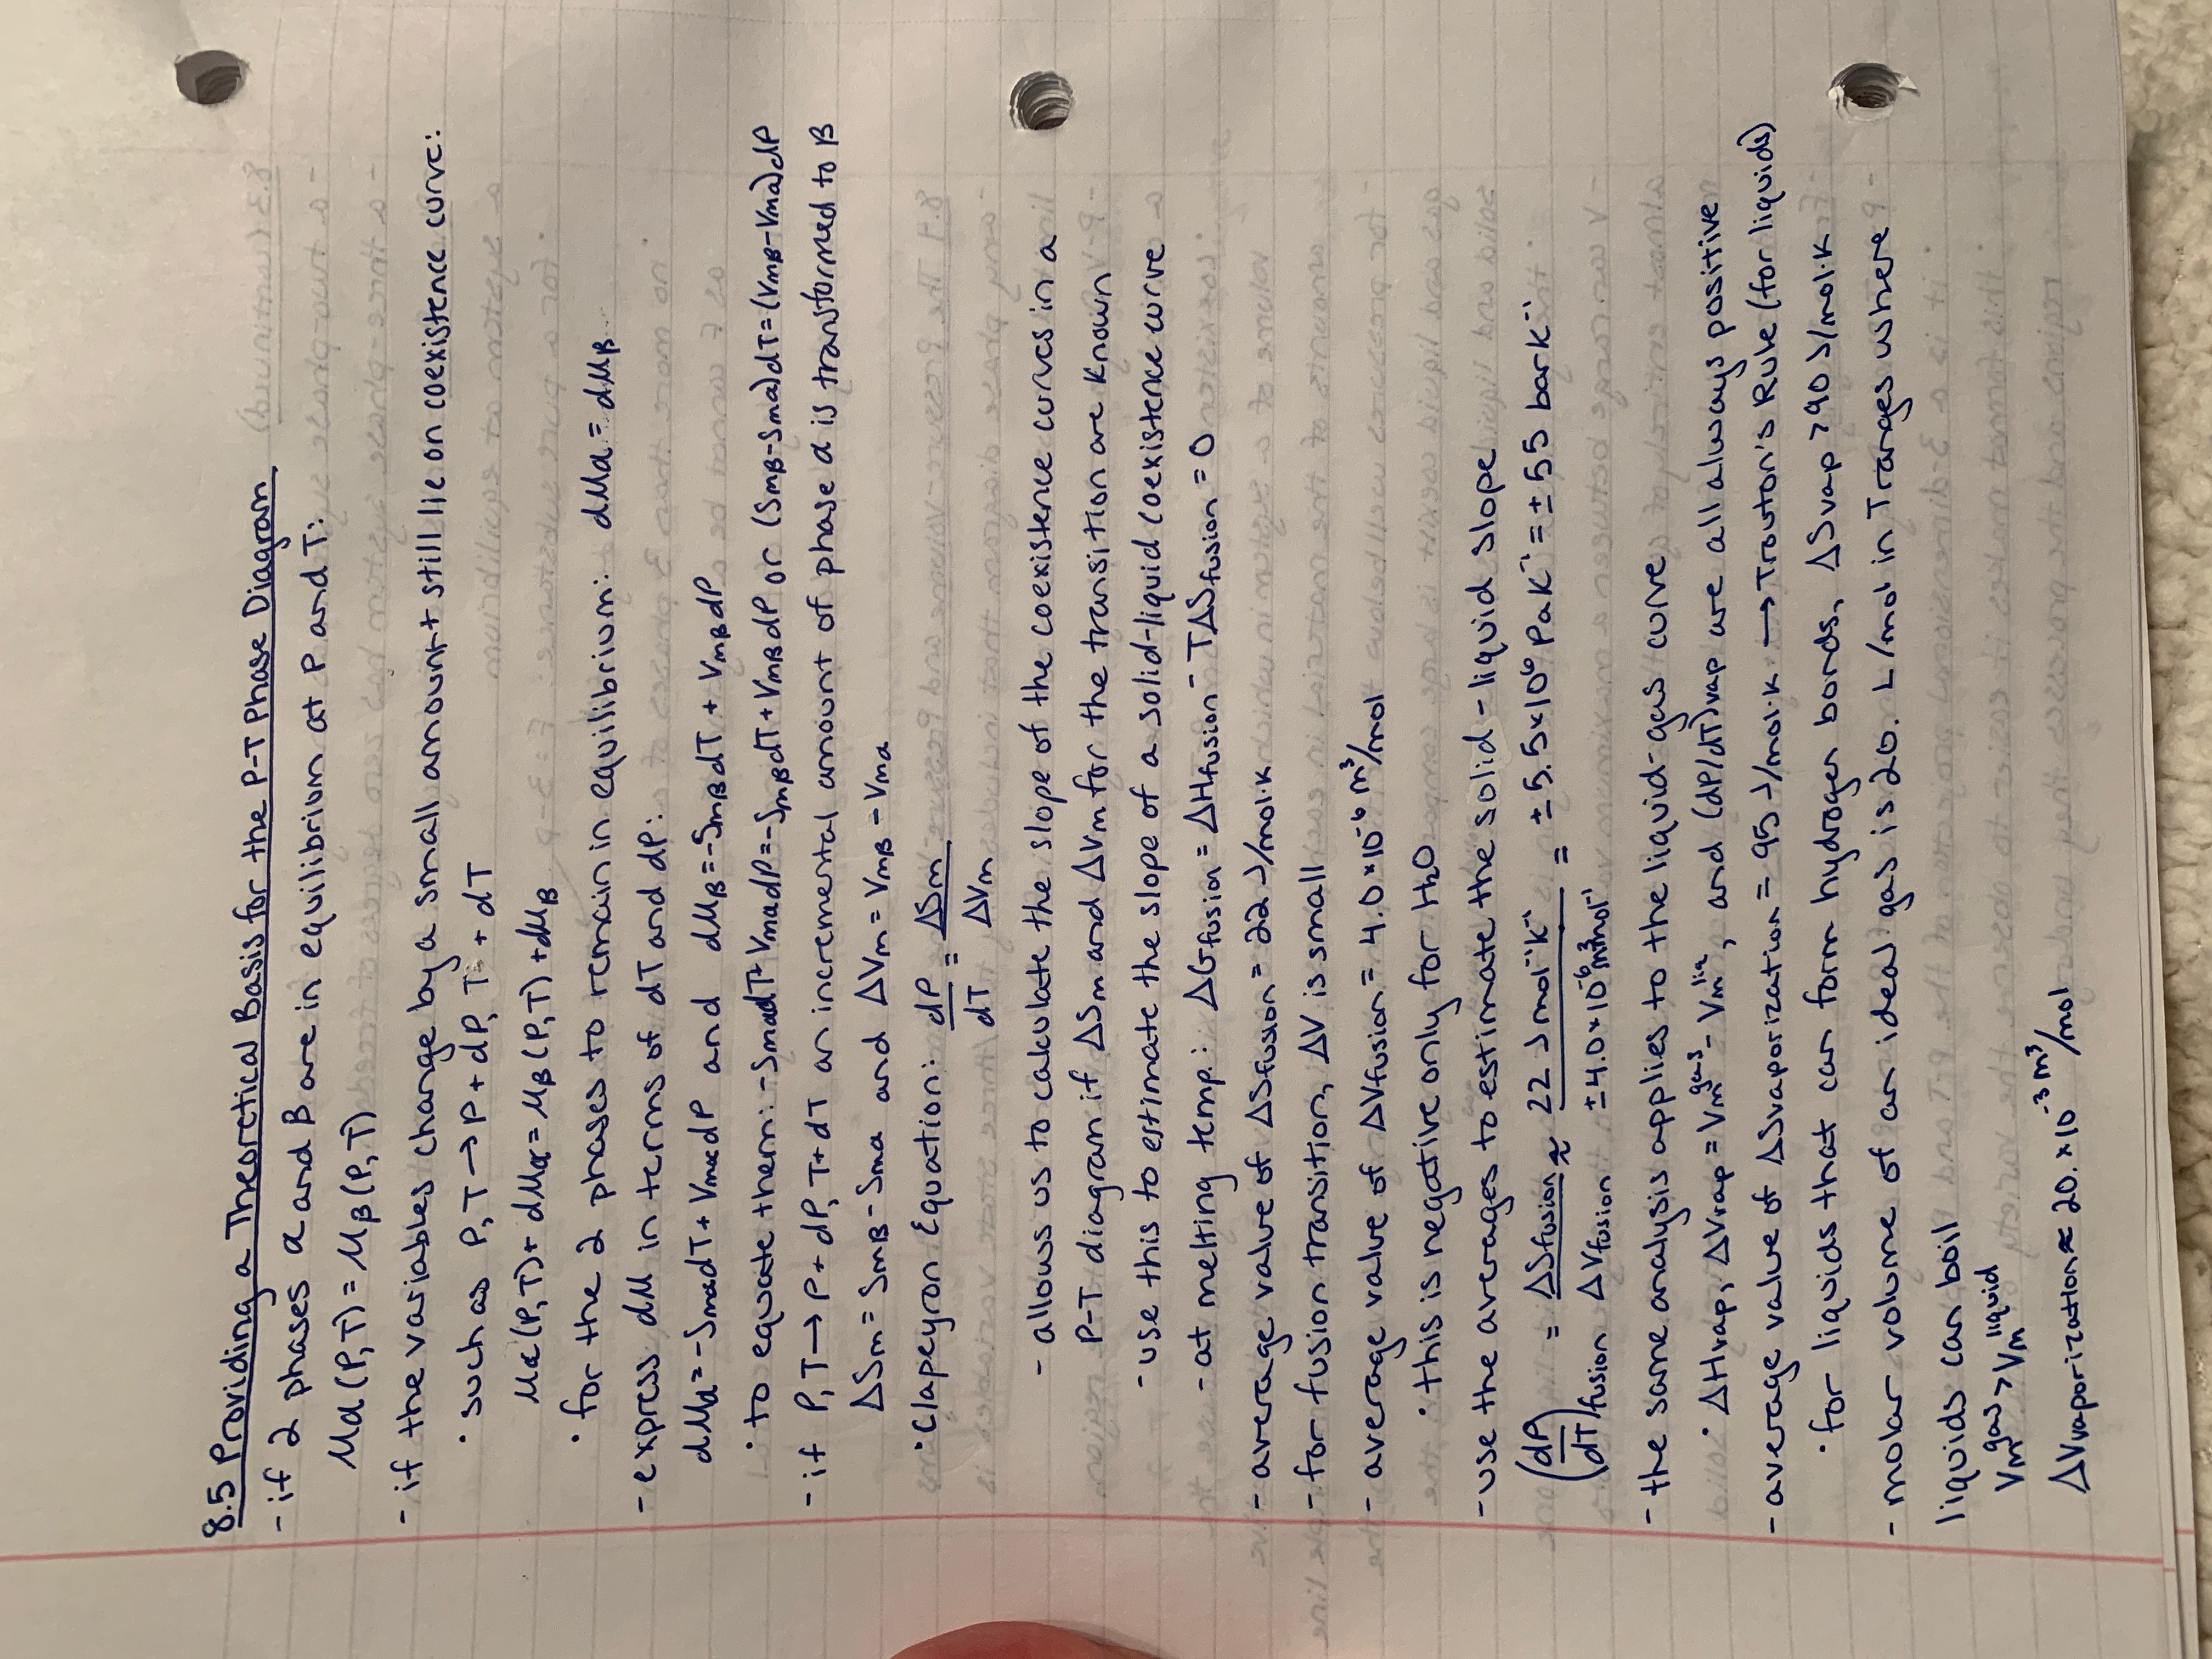 8.5 Providing a Theoretical Basis for the P-T Phase Diagram
- if 2 phases α and β are in equilibrium at P and T:
μα(P,T) = μβ(P,T)
- if the variables change by a small amount + still lie on coexistence curve:
• such as P, T → P + dP, T + dT
μα(P,T) + dμα = μβ(P,T) + dμβ
• for the 2 phases to remain in equilibrium: dμα = dμβ
- express dμ in terms of dT and dP:
dμα = -Smα dT + Vmα dP and dμβ = -Smβ dT + Vmβ dP
• to equate them: -Smα dT + Vmα dP = -Smβ dT + Vmβ dP or (Smβ - Smα)dT = (Vmβ - Vmα)dP
- if P, T → P + dP, T + dT an incremental amount of phase α is transformed to β
ΔSm = Smβ - Smα and ΔVm = Vmβ - Vmα
• Clapeyron Equation: dP/dT = ΔSm/ΔVm
- allows us to calculate the slope of the coexistence curves in a
P-T diagram if ΔSm and ΔVm for the transition are known
- use this to estimate the slope of a solid-liquid coexistence curve
- at melting temp.: ΔGfusion = ΔHfusion - TΔSfusion = 0
- average value of ΔSfusion = 22 J/mol·K
- for fusion transition, ΔV is small
- average value of ΔVfusion = 4.0×10⁻⁶ m³/mol
• this is negative only for H₂O
- use the averages to estimate the solid-liquid slope
(dP/dT)fusion = ΔSfusion/ΔVfusion ≈ 22 J mol⁻¹K⁻¹/±4.0×10⁻⁶ m³mol⁻¹ = ±5.5×10⁶ Pa K⁻¹ = ±55 bar K⁻¹
- the same analysis applies to the liquid-gas curve
• ΔHvap, ΔVvap = Vm^gas - Vm^liq, and (dP/dT)vap are all always positive
- average value of ΔSvaporization = 95 J/mol·K → Trouton's Rule (for liquids)
• for liquids that can form hydrogen bonds, ΔSvap > 90 J/mol·K
- molar volume of an ideal gas is 20. L/mol in T ranges where
liquids can boil
Vm^gas > Vm^liquid
ΔVvaporization ≈ 20. × 10⁻³ m³/mol